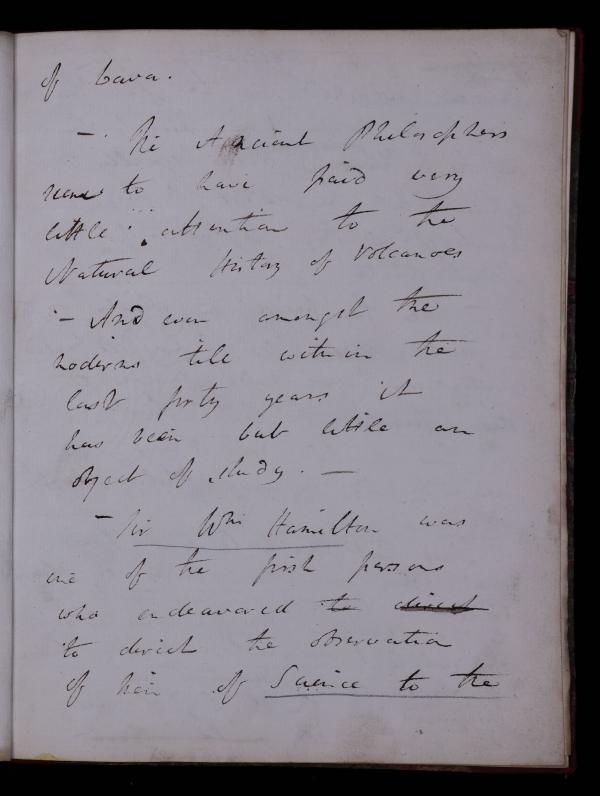 of Lava.
— The Ancient Philosophers
seem to have paid very
little attention to the
Natural History of Volcanoes
— And even amongst the
moderns till within the
last forty years it
has been but little an
object of study. —
— Sir Wm Hamilton was
one of the first persons
who endeavored to direct
to direct the observation
of men of Science to the